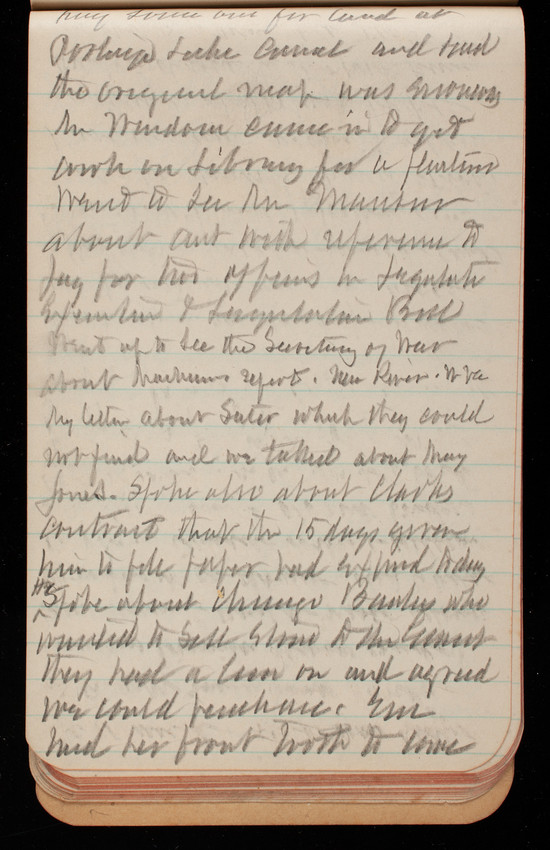 for land at
Portage Lake Canal and said
the original map was erroneous
Mr Windom came in to get
work on Library for a
Went to see Mr
about act with reference to
pay for two officers in Legislative
Executive & Legislative Bill
Went up to see the Secretary of War
about report. New River. W Va
My letter about which they could
not find and we talked about May
Jones. Spoke also about Clarks
contract that the 15 days given
him to file paper had expired today
He
Spoke about Chicago who
wanted to sell Stone to the Canal
they had a loan on and agreed
we could purchase. Em
had her front tooth to come